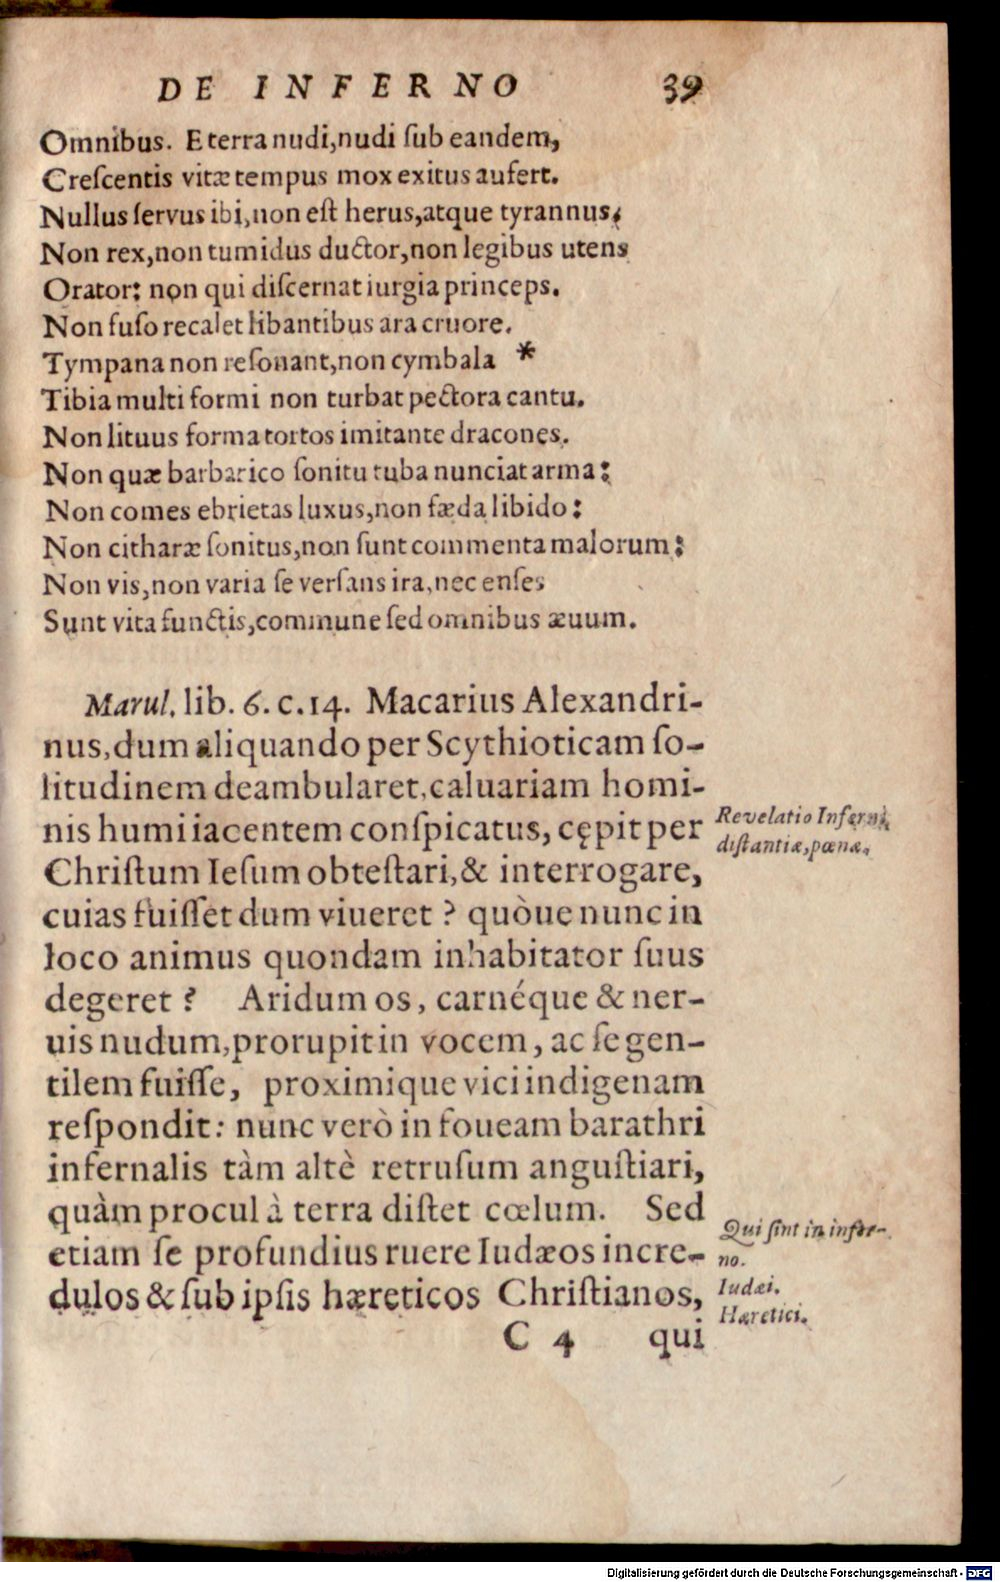 DE INFERNO 39
Omnibus. E terra nudi, nudi ſub eandem,
Creſcentis vitæ tempus mox exitus aufert.
Nullus ſervus ibi, non eſt herus, atque tyrannus;
Non rex, non tumidus ductor, non legibus utens
Orator: non qui diſcernat iurgia princeps.
Non fuſo recalet libantibus ara cruore.
Tympana non reſonant, non cymbala *
Tibia multi formi non turbat pectora cantu.
Non lituus forma tortos imitante dracones.
Non quæ barbarico ſonitu tuba nunciat arma:
Non comes ebrietas luxus, non fæda libido:
Non citharæ ſonitus, non ſunt commenta malorum:
Non vis, non varia ſe verſans ira, nec enſes
Sunt vita functis, commune ſed omnibus æuum.
Marul. lib. 6. c. 14. Macarius Alexandri-
nus, dum aliquando per Scythioticam ſo-
litudinem deambularet, caluariam homi-
nis humi iacentem conſpicatus, cępit per
Chriſtum Ieſum obteſtari, & interrogare,
cuias fuiſſet dum viueret? quòue nunc in
loco animus quondam inhabitator ſuus
degeret? Aridum os, carnéque & ner-
uis nudum, prorupit in vocem, ac ſe gen-
tilem fuiſſe, proximique vici indigenam
reſpondit: nunc verò in foueam barathri
infernalis tàm altè retruſum anguſtiari,
quàm procul à terra diſtet cœlum. Sed
etiam ſe profundius ruere Iudæos incre-
dulos & ſub ipſis hæreticos Chriſtianos,
C 4 qui
Revelatio Inferni,
diſtantiæ, pœnæ.
Qui ſint in infer-
no.
Iudæi.
Hæretici.
Digitalisierung gefördert durch die Deutsche Forschungsgemeinschaft - DFG